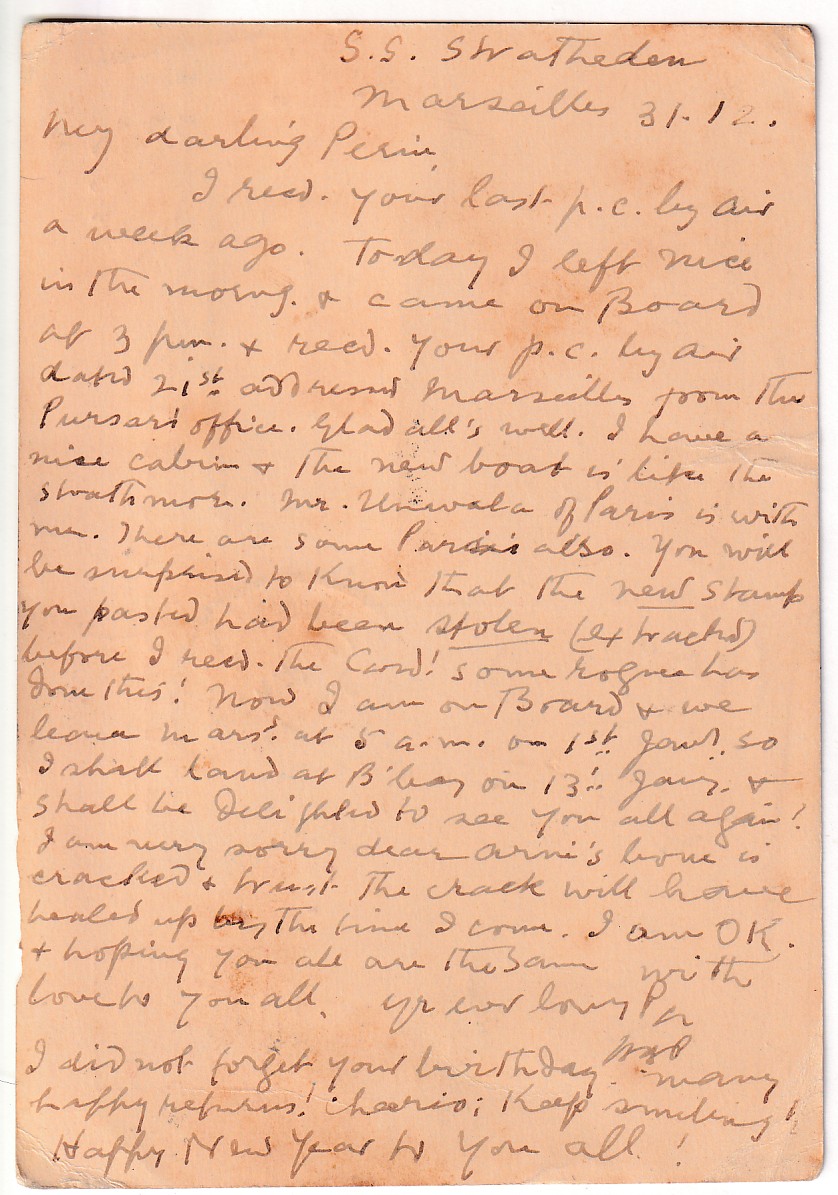 S.S. Stratheden
Marseilles 31.12.
My darling Perin,
I recd. your last p.c. by air
a week ago. Today I left Nice
in the morng. & came on Board
at 3 p.m. & recd. your p.c. by air
datd 21st addressed Marseilles from the
Purser's office. Glad all's well. I have a
nice cabin & the new boat is like the
Strathmore. Mr. Unwala of Paris is with
me. There are some Parsis also. You will
be surprised to know that the new stamp
you pasted had been stolen (extracted)
before I recd. the Card! Some rogue has
done this! Now I am on Board & we
leave Mars. at 5 a.m. on 1st Jany. so
I shall land at B'bay on 13th Jany. &
shall be delighted to see you all again!
I am very sorry dear Arni's bone is
cracked & trust the crack will have
healed up by the time I come. I am OK.
& hoping you all are the same with
love to you all. yr ever lovg
I did not forget your birthday. many
happy returns! cheerio; Keep smiling!
Happy New Year to you all!